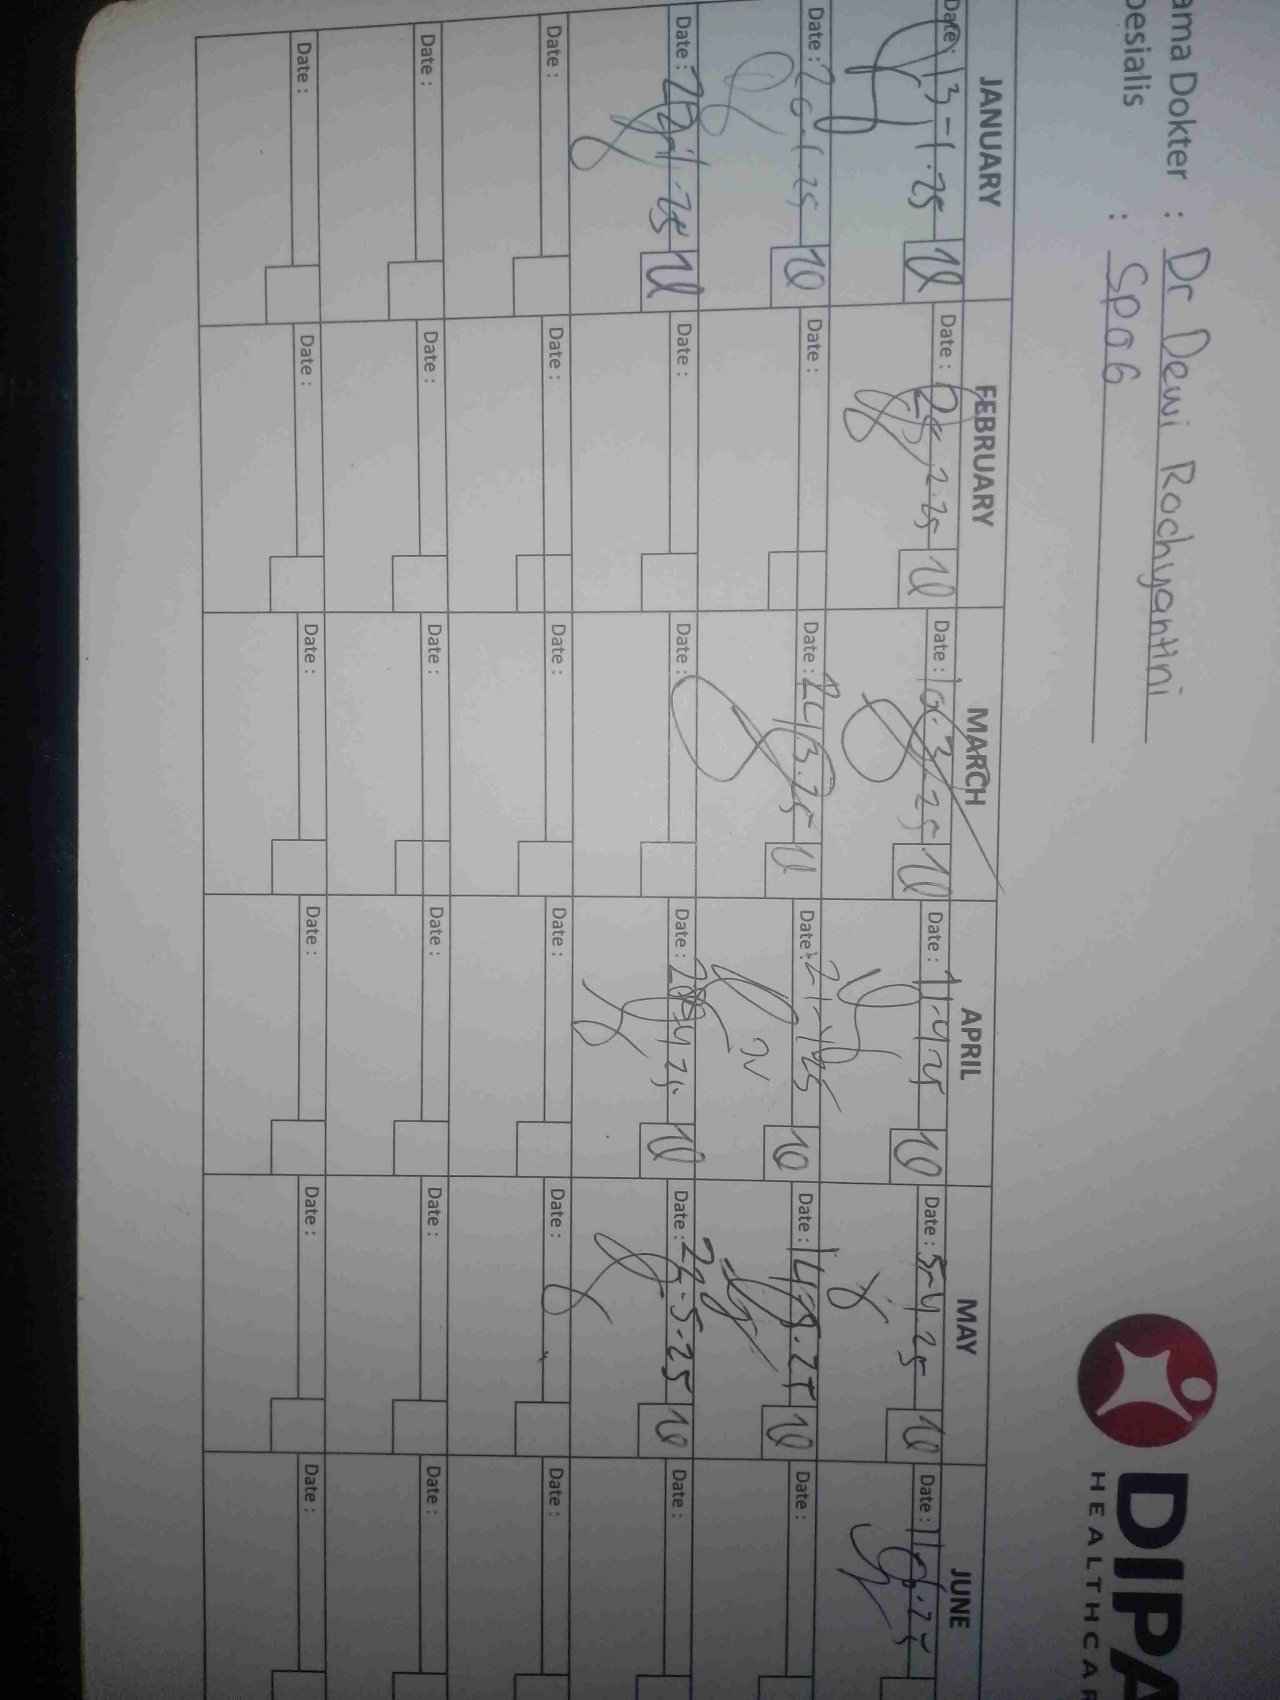 ama Dokter : Dr Dewi Rochyantini
pesialis : SpOG
DIPA
HEALTHCAR
JANUARY FEBRUARY MARCH APRIL MAY JUNE
Date : 13-1.25 10 Date : 10 Date : 10.3.25 10 Date : 11-4.25 10 Date : 5-4.25 10 Date :
Date : 20-1.25 10 Date : Date : 24/3.25 10 Date : 10 Date : 10 Date :
Date : 10 Date : Date : Date : 10 Date : 10 Date :
Date : Date : Date : Date : Date : Date :
Date : Date : Date : Date : Date : Date :
Date : Date : Date : Date : Date : Date :